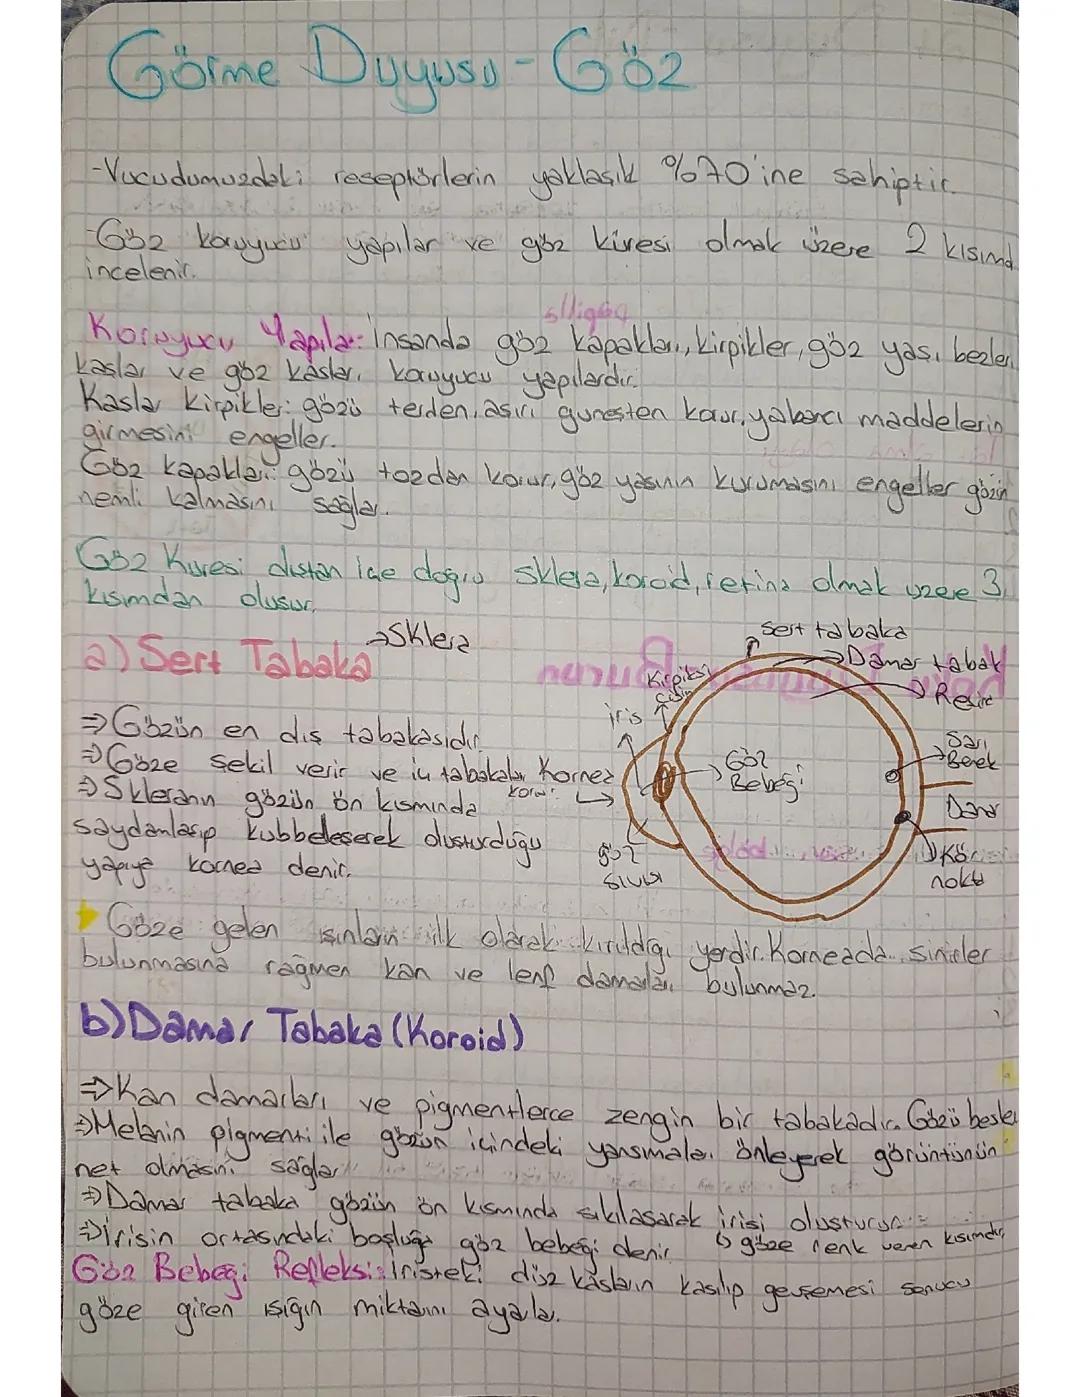 Görme Duyusu - Göz
-Vucudumuzdaki reseptörlerin yaklaşık %70'ine sahiptir.
-Göz koruyucu yapılar ve göz küresi olmak üzere 2 kısımd
incelenir.
Koruyucu Yapılar: İnsanda göz kapakları, kirpikler, göz yaşı bezleri,
kaşlar ve göz kasları koruyucu yapılardır.
Kaslar Kirpikler: gözü terden, aşırı güneşten korur, yabancı maddelerin
girmesini engeller.
Göz kapakları: gözü tozdan korur, göz yaşının kurumasını engeller gözün
nemli kalmasını sağlar.
Göz Küresi dıştan içe doğru sklera, koroid, retina olmak üzere 3
kısımdan oluşur.
a) Sert Tabaka →Sklera
⇒Gözün en dış tabakasıdır.
⇒Göze şekil verir ve iç tabakaları korur.
⇒Skleranın gözün ön kısmında
saydamlaşıp kubbeleşerek oluşturduğu
yapıya kornea denir.
sert tabaka
Damar tabak
Kirpiksi
cisim
iris
Kornea
Göz
Bebeği
göz
sıvısı
Sarı
Benek
Damar
Kör
nokta
Göze gelen ışınların ilk olarak kırıldığı yerdir. Korneada sinirler
bulunmasına rağmen kan ve lenf damarları bulunmaz.
b) Damar Tabaka (Koroid)
⇒Kan damarları ve pigmentlerce zengin bir tabakadır. Gözü besler
⇒Melanin pigmenti ile gözün içindeki yansımaları önleyerek görüntünün
net olmasını sağlar
⇒Damar tabaka gözün ön kısmında sıkılaşarak irisi oluşturur.
↳ göze renk veren kısımdır,
⇒İrisin ortasındaki boşluğa göz bebeği denir
Göz Bebeği Refleksi: İristeki düz kasların kasılıp gevşemesi sonucu
göze giren ışığın miktarını ayarlar.